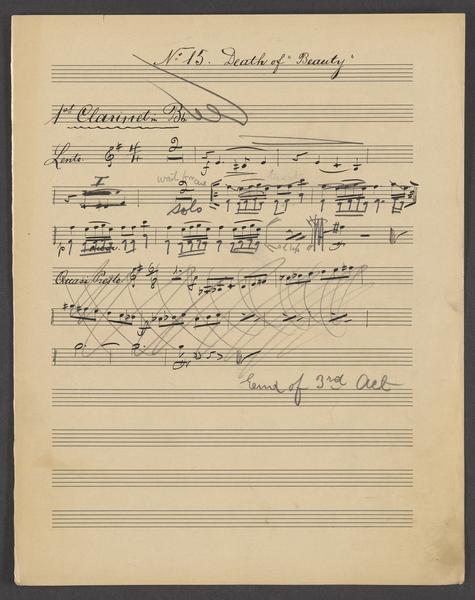 No. 15. Death of "Beauty"
1st Clarinet in Bb
Lento.
2
wait for cue
I
2
Solo
p
Quasi Presto
End of 3rd Act